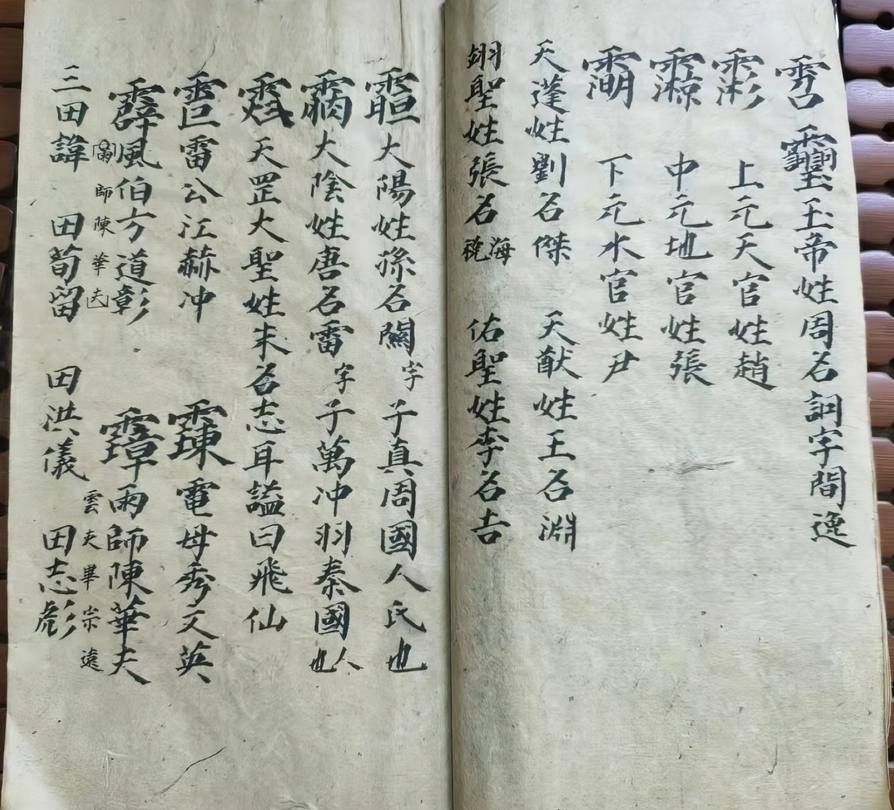 玉帝姓周名詞字間逸
上元天官姓趙
中元地官姓張
下元水官姓尹
天蓬姓劉名傑 天猷姓王名淵
翊聖姓張名海 佑聖姓李名吉
大陽姓孫名 字子真周國人氏也
大陰姓唐名雷字子萬冲羽秦國人也
天罡大聖姓朱名志耳謚曰飛仙
雷公江赫冲 電母秀文英
霹風伯方道彰 雨師陳華夫
師陳華夫 雲夫畢宗遠
三田諱 田苟留 田洪儀 田志彪